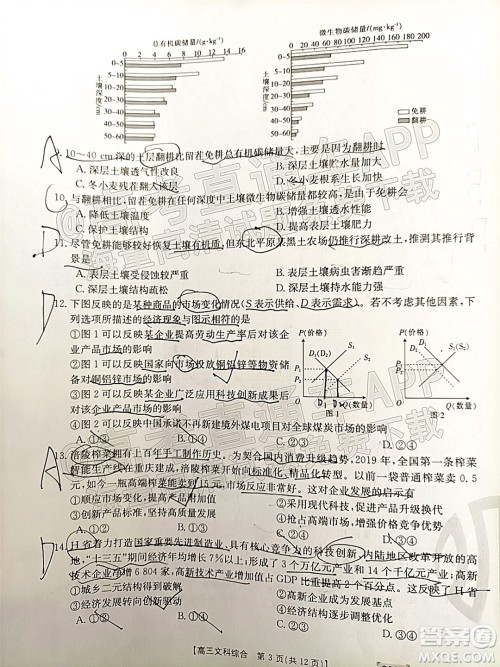 总有机碳储量/(g·kg⁻¹)
0 2 4 6 8 10 12 14 16
土壤深度/cm
0~5
5~10
10~20
20~30
30~40
40~50
50~60
微生物碳储量/(mg·kg⁻¹)
0 20 40 60 80 100 120 140 160 180 200
土壤深度/cm
0~5
5~10
10~20
20~30
30~40
40~50
50~60
免耕
翻耕
9. 10~40 cm深的土层翻耕比留茬免耕总有机碳储量大，主要是因为翻耕时
A. 深层土壤透气性改良 B. 深层土壤贮水量加大
C. 冬小麦残茬翻入该层 D. 深层土壤温度升高
10. 与翻耕相比，留茬免耕在任何深度中土壤微生物碳储量都高，是由于免耕会
A. 降低土壤温度 B. 增强土壤透水性能
C. 保护土壤结构 D.
11. 尽管免耕能够较好恢复土壤有机质，但东北平原某黑土农场仍推行深耕改土，推测其推行
背景是
A. 表层土壤受侵蚀较严重 B. 表层土壤病虫害渐趋严重
C. 表层土壤结构疏松 D. 深层土壤
12. 下图反映的是某种商品的市场变化情况（S表示供给、D表示需求）。若不考虑其他因素，下
列选项所描述的经济现象与图示相符的是
①图1可以反映某企业提高劳动生产率后对该企
业产品市场的影响
②图1可以反映国家向市场投放铜铝锌等物资储
备对铜铝锌市场的影响
③图2可以反映某企业广泛应用科技创新成果后
对该企业产品市场的影响
④图2可以反映中国承诺不再新建境外煤电项目对全球煤炭市场的影响
P(价格)
D₁(D₂)
S₁
S₂
P₁
P₂
Q(数量)
图1
P(价格)
S₁(S₂)
D₁
D₂
Q(数量)
图2
A. ①③ B. ①④ C. ②③ D. ②④
13. 涪陵榨菜上百年手工制作历史，为契合国内消费升级趋势，2019年，全国第一条榨菜
智能生产线在重庆建成，涪陵榨菜开始向标准化、精品化转型。以前一袋普通榨菜卖0.5
元，如今一瓶高端榨菜能卖到15元，市场反应非常好。这一企业发展的启示有
①顺应市场趋势，创新生产技术 ②依托科技创新，促进产品升级换代
③创新产品标准，适应市场发展 ④坚持创新创优，增强产品竞争优势
A. ①③ B. ①④ C. ②③ D. ②④
14. H省着力打造国家重要先进制造业、具有核心竞争力的科技创新、内陆地区改革开放的高
地，“十三五”期间经济年均增长7%以上；形成了3个万亿元产业和14个千亿元产业；高新
技术企业净增6804家，高新技术产业增加值占GDP比重提高2个百分点。这反映了H省
①城乡二元结构得到破解
③经济发展转向创新驱动
高三文科综合 第3页(共12页)